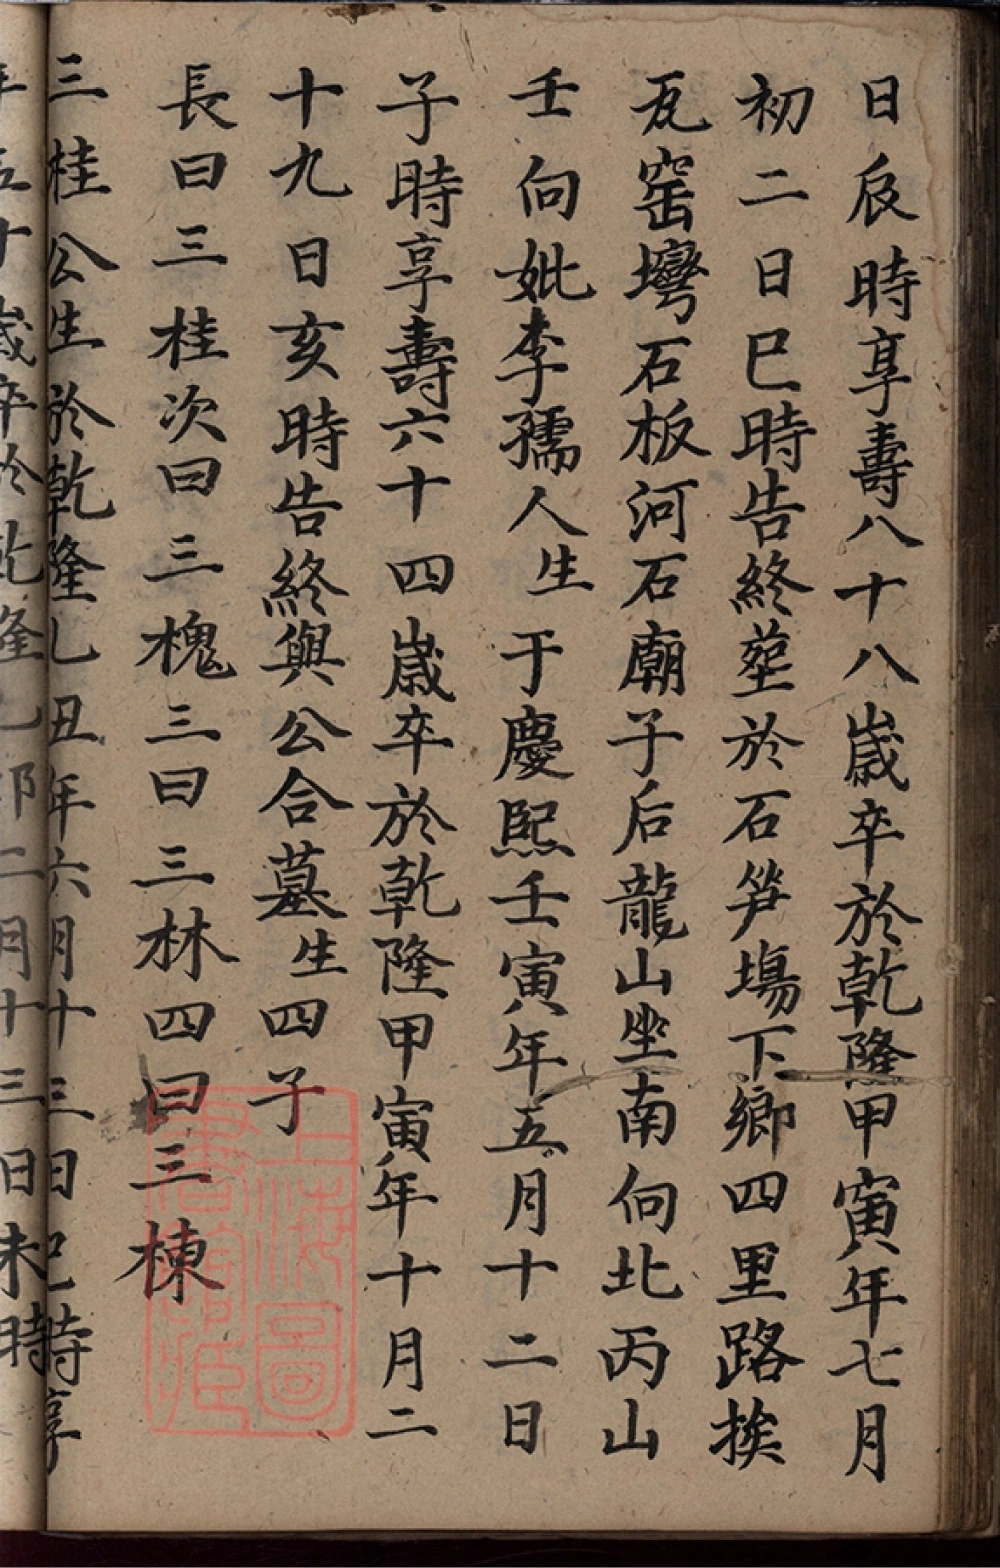 日辰時享壽八十八歲卒於乾隆甲寅年七月
初二日巳時告終塟於石笋塲下鄉四里路挨
瓦窑壪石板河石廟子后龍山坐南向北丙山
壬向妣李孺人生于慶熙壬寅年五月十二日
子時享壽六十四歲卒於乾隆甲寅年十月二
十九日亥時告終與公合墓生四子
長曰三桂次曰三槐三曰三林四曰三棟
三桂公生於乾隆乙丑年六月十三日巳時享
年五十歲卒於乾隆乙卯二月十三日未時
上海圖書館藏